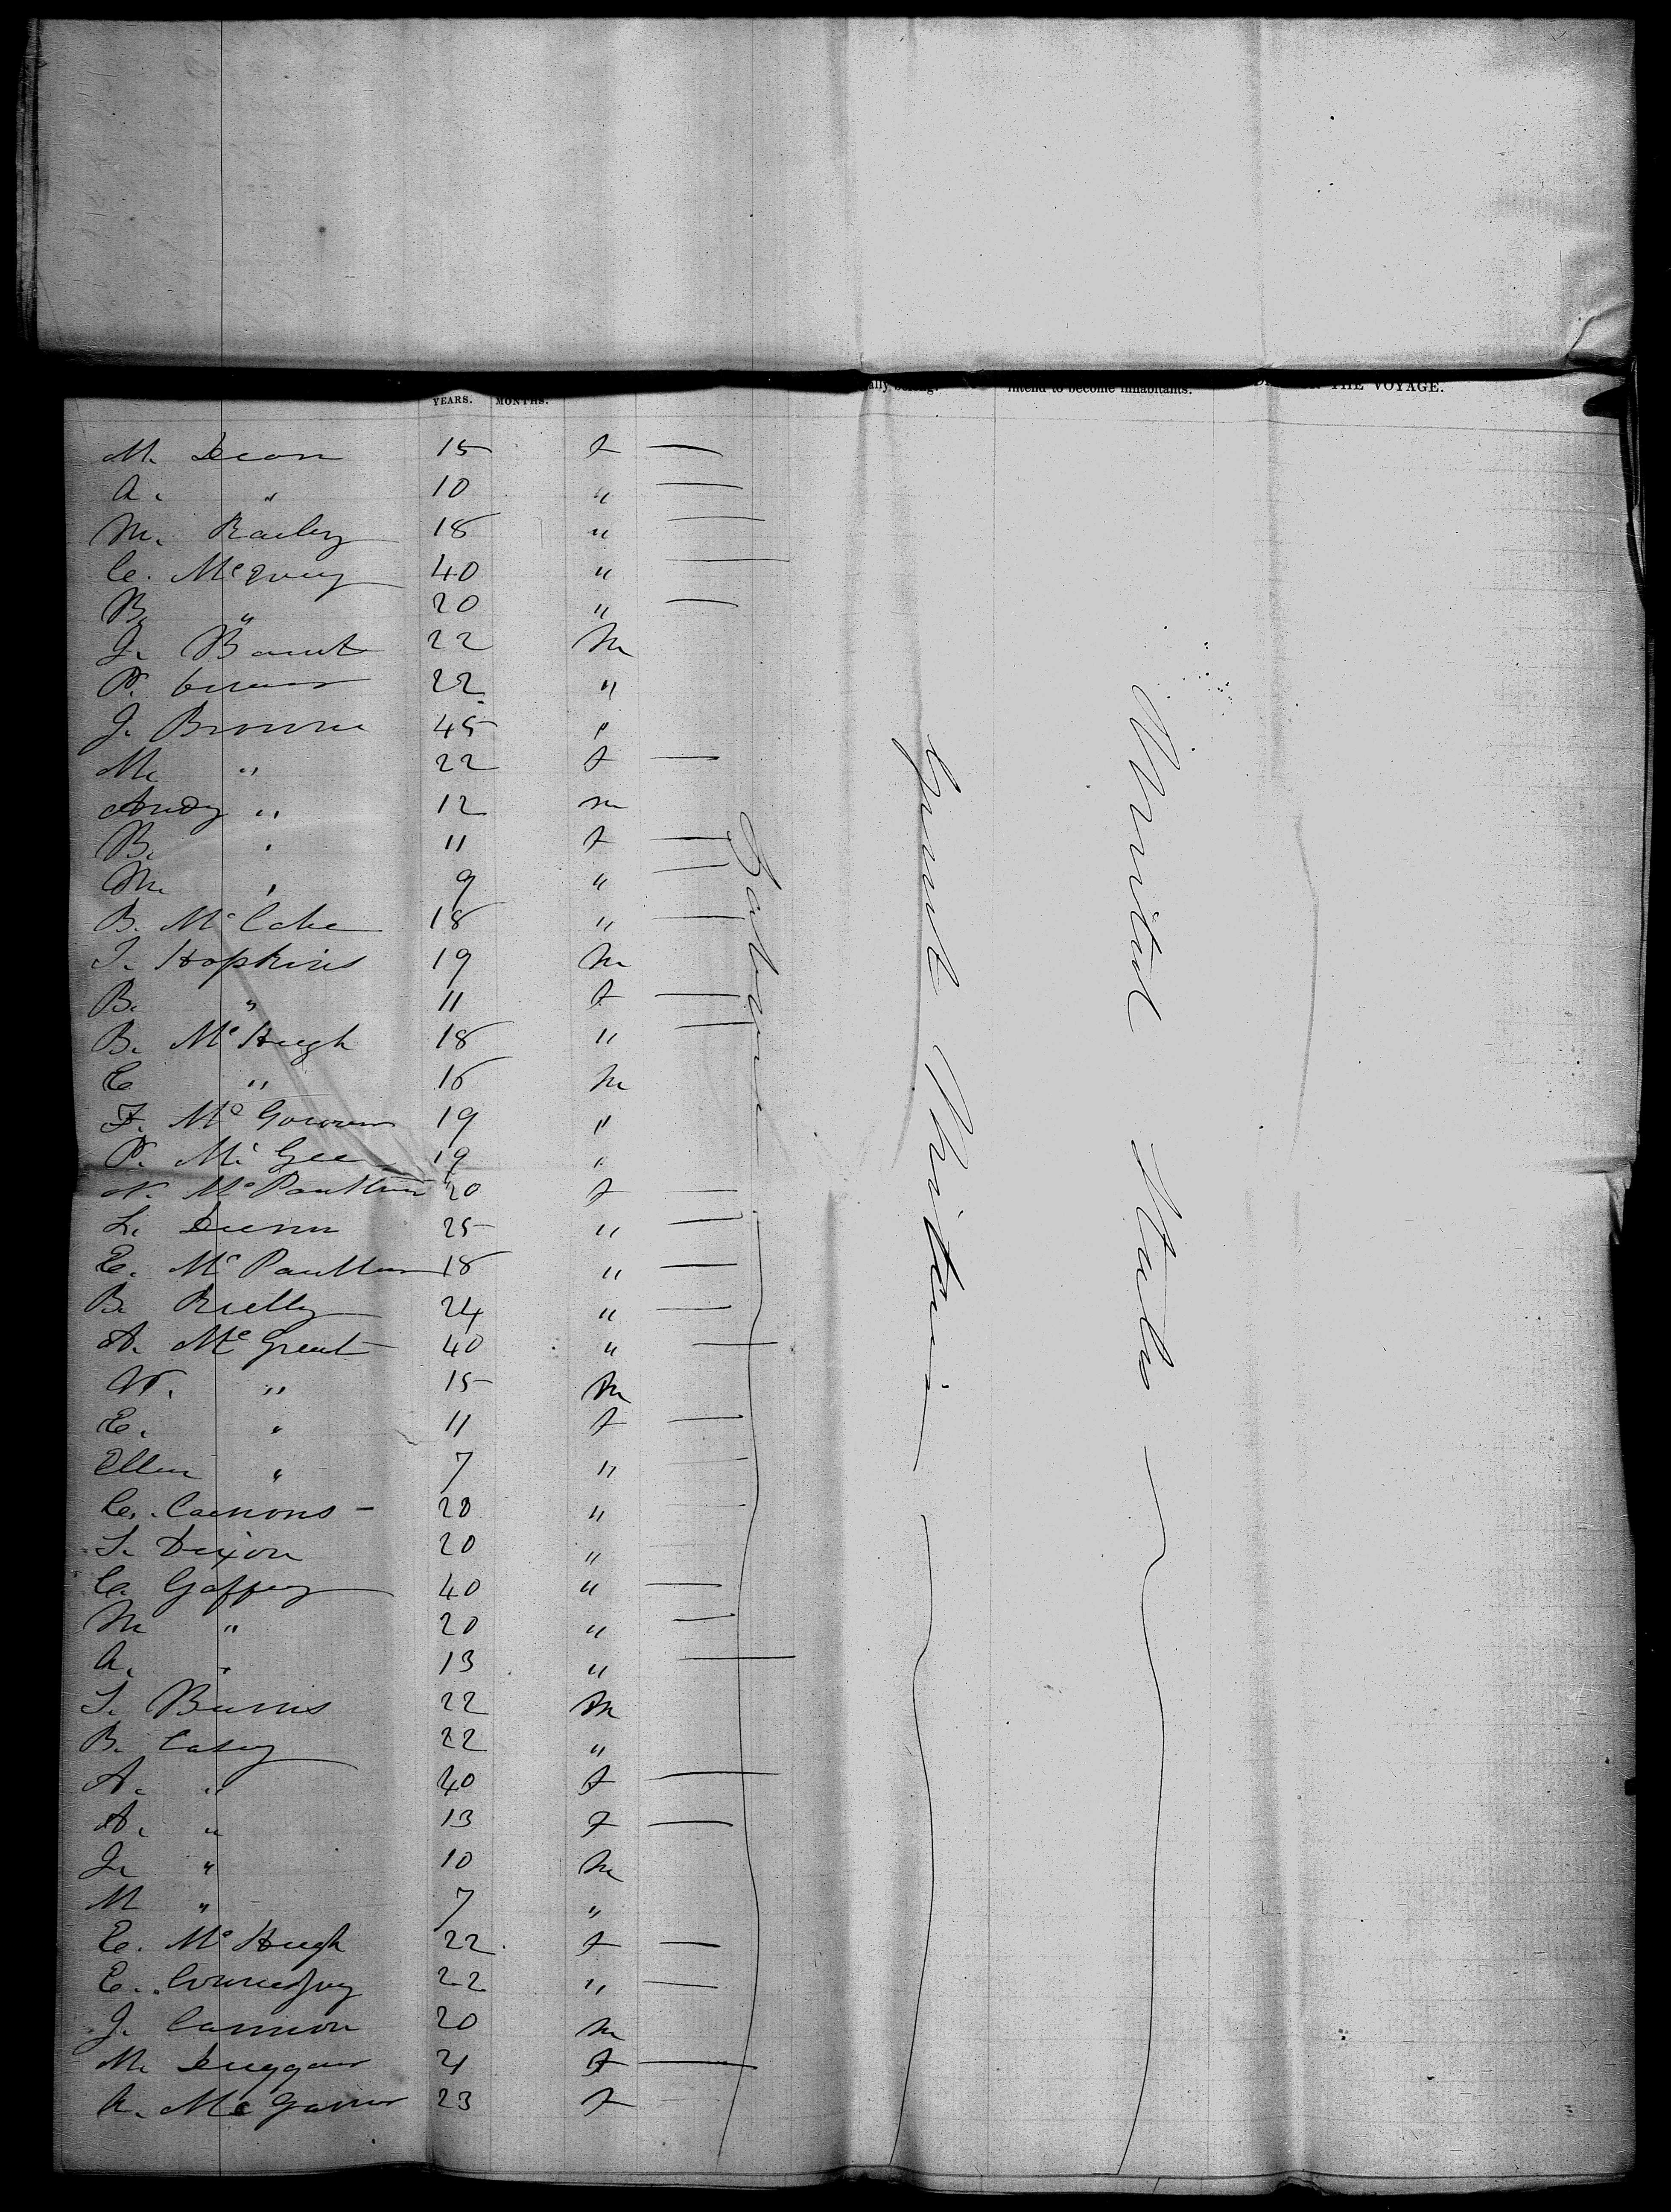 YEARS. MONTHS. intend to become inhabitants. THE VOYAGE.
M. Dean 15 f —
A. " 10 " —
M. Railey 18 " —
C. 40 " —
B. " 20 " —
J. 22 M
P. 22 "
J. Browne 45 "
M. " 22 f —
Andy " 12 m
B. " 11 f —
M. " 9 " —
B. McCabe 18 " —
T. Hopkins 19 M
B. " 11 f —
B. McHugh 18 " —
C " 16 M
F. McGowan 19 "
P. McGee 19 "
N. 20 f —
L. Dunn 25 " —
E. 18 " —
B. Rielly 24 " —
A. McGreut 40 " —
W. " 15 M
E. " 11 f —
Ellen " 7 " —
C. Camons - 20 " —
S. Dixon 20 "
C. Gaffney 40 " —
M " 20 " —
A. " 13 " —
T. Burns 22 M
B. Casey 22 "
A. " 40 f —
A. " 13 f —
J. " 10 M
M " 7 "
C. McHugh 22 f —
E. 22 " —
J. Cannon 20 M
M. Duggan 21 f —
A. 23 f —
Laborer
Great Britain
United States